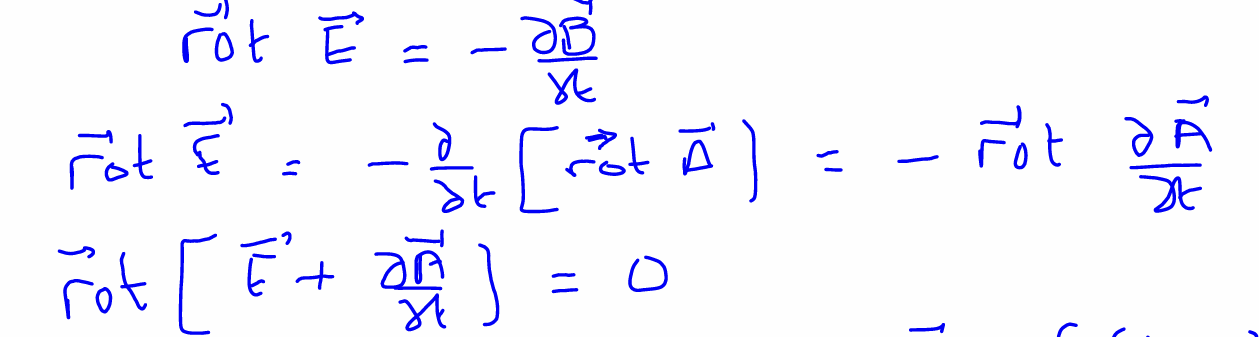 r⃗ot E⃗ = - ∂B⃗/∂t
r⃗ot E⃗ = - ∂/∂t [ r⃗ot A⃗ ] = - r⃗ot ∂A⃗/∂t
r⃗ot [ E⃗ + ∂A⃗/∂t ] = 0